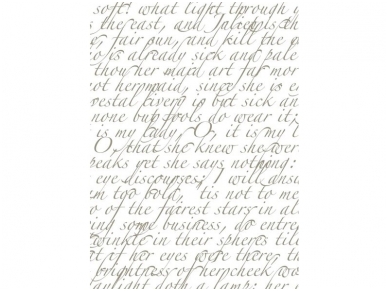 soft! what light through y
s the east, and Juliet is th
e, fair sun, and kill the
o is already sick and pale
thou her maid art far mor
ot her maid, since she is e
vestal livery is but sick an
none but fools do wear it;
is my lady, O, it is my l
O, that she knew she wer
peaks yet she says nothing:
eye discourses; I will ans
m too bold, 'tis not to me
o of the fairest stars in al
ing some business, do entre
twinkle in their spheres till
at if her eyes were there, th
brightness of her cheek wo
aylight doth a lamp; her